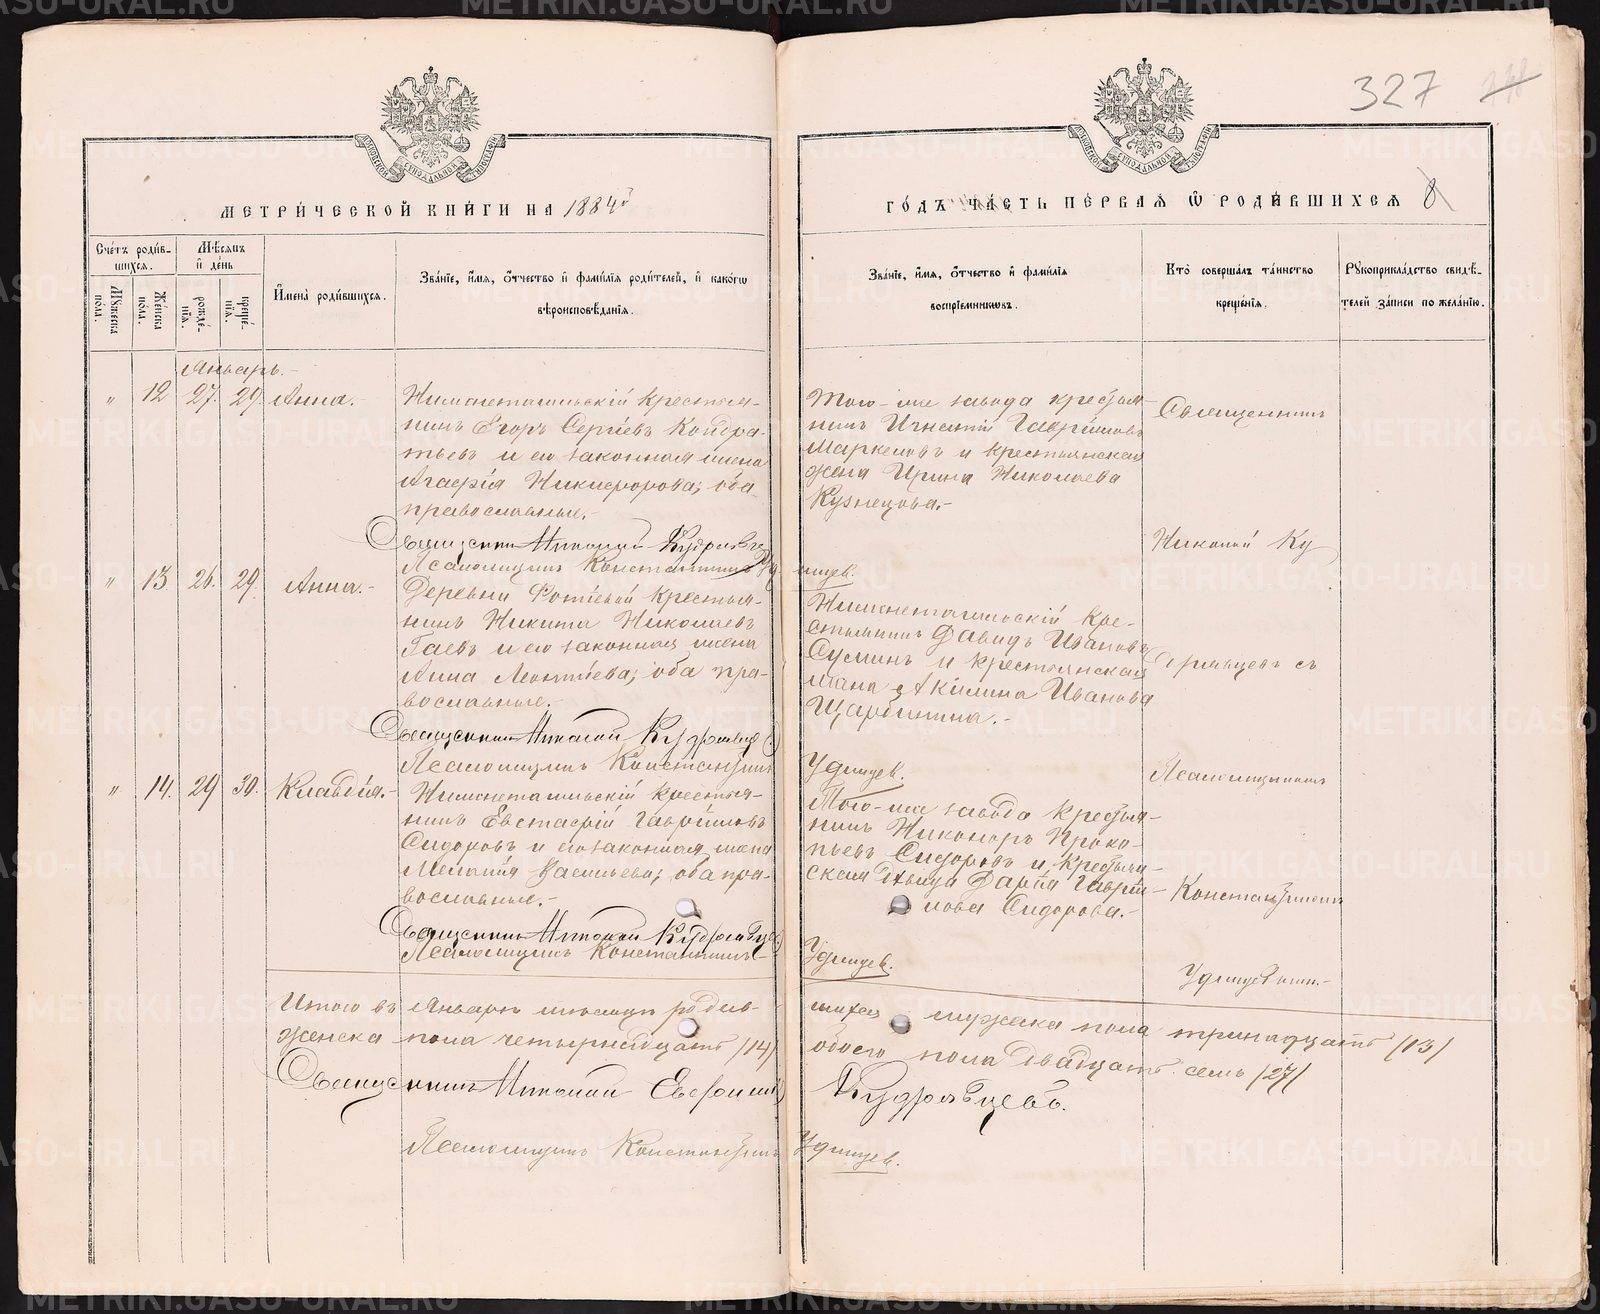 327
МЕТРИЧЕСКОЙ КНИГИ НА 1884й
ГОДЪ ЧАСТЬ ПЕРВАЯ Ѿ РОДИВШИХСЯ 8
Счетъ родив-
шихся.
Мѣсяцъ
и день
Мужеска
пола.
Женска
пола.
рожде-
нія.
креще-
нія.
Имена родившихся.
Званіе, имя, отчество и фамилія родителей, и какогѡ
вѣроисповѣданія.
Званіе, имя, отчество и фамилія
воспріемниковъ.
Кто совершалъ таинство
крещенія.
Рукоприкладство свидѣ-
телей записи по желанію.
Январь.-
" 12 27. 29. Анна.-
Нижнетагильскій крестья-
нинъ Егоръ Сергіевъ Кондра-
тьевъ и его законная жена
Агафія Никифорова; оба
православные.-
Священникъ Николай Кудрявце
Псаломщикъ Константинъ Уд
Того-же завода крестья-
нинъ Игнатій Гавріиловъ
Маркеловъ и крестьянская
жена Ирина Николаева
Кузнецова.-
инцев.
Священникъ
Николай Ку
" 13. 26. 29. Анна.-
Деревни крестья-
нинъ Никита Николаевъ
Гаевъ и его законная жена
Анна Леонтіева; оба пра-
вославные.-
Священникъ Николай Кудрявце
Псаломщикъ Константинъ
Нижнетагильскій кре-
стьянинъ Давидъ Ивановъ
Сусминъ и крестьянская
жена Акилина Иванова
Щарбинина.-
Удинцев.
дрявцевъ съ
Псаломщикомъ
" 14. 29 30. Клавдія.-
Нижнетагильскій крестья-
нинъ Евстафій Гавріиловъ
Сидоровъ и его законная жена
Меланія Васильева; оба пра-
вославные.-
Священникъ Николай Кудрявце
Псаломщикъ Константинъ
Того-же завода крестья-
нинъ Никоноръ Проко-
пьевъ Сидоровъ и крестьян-
ская дѣвица Дарія Гаврі-
лова Сидорова.-
Удинцев.
Константиномъ
Удинцевымъ.-
Итого въ Январѣ мѣсяцѣ родив-
шихся мужеска пола тринадцать (13)
женска пола четырнадцать (14)
обоего пола двадцать семь (27)
Священникъ Николай
Кудрявцевъ.
Псаломщикъ Константинъ Удинцев.
METRIKI.GASO-URAL.RU